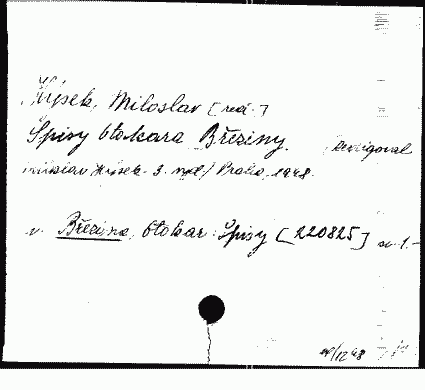 Hýsek, Miloslav [red.]
Spisy Otokara Březiny. Redigoval
Miloslav Hýsek. 3. vyd./ Praha, 1948.
v. Březina, Otokar: Spisy [220825] sv. 1.-
12 48